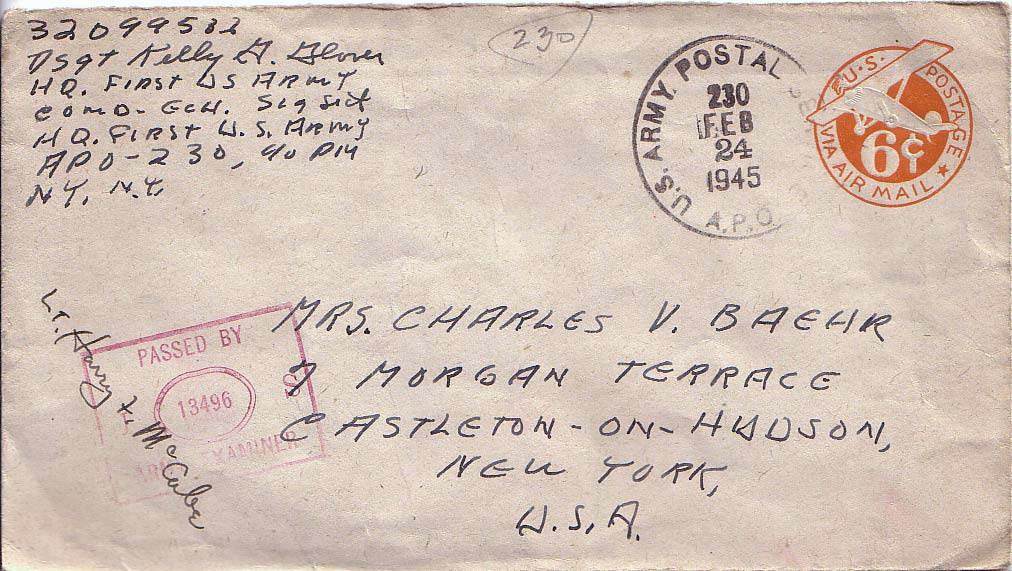 32099582
T/Sgt Kelly G. Glover
HQ. FIRST US ARMY
COMD- ECH. Sig Sect
HQ. FIRST U.S. ARMY
APO-230, % PM
NY, N.Y.
230
U.S. ARMY POSTAL
230
FEB
24
1945
A.P.O.
U.S. POSTAGE
6¢
VIA AIR MAIL
MRS. CHARLES V. BAEHR
7 MORGAN TERRACE
CASTLETON-ON-HUDSON,
NEW YORK,
U.S.A.
PASSED BY
13496
ARMY EXAMINER
Lt. Harry McCabe